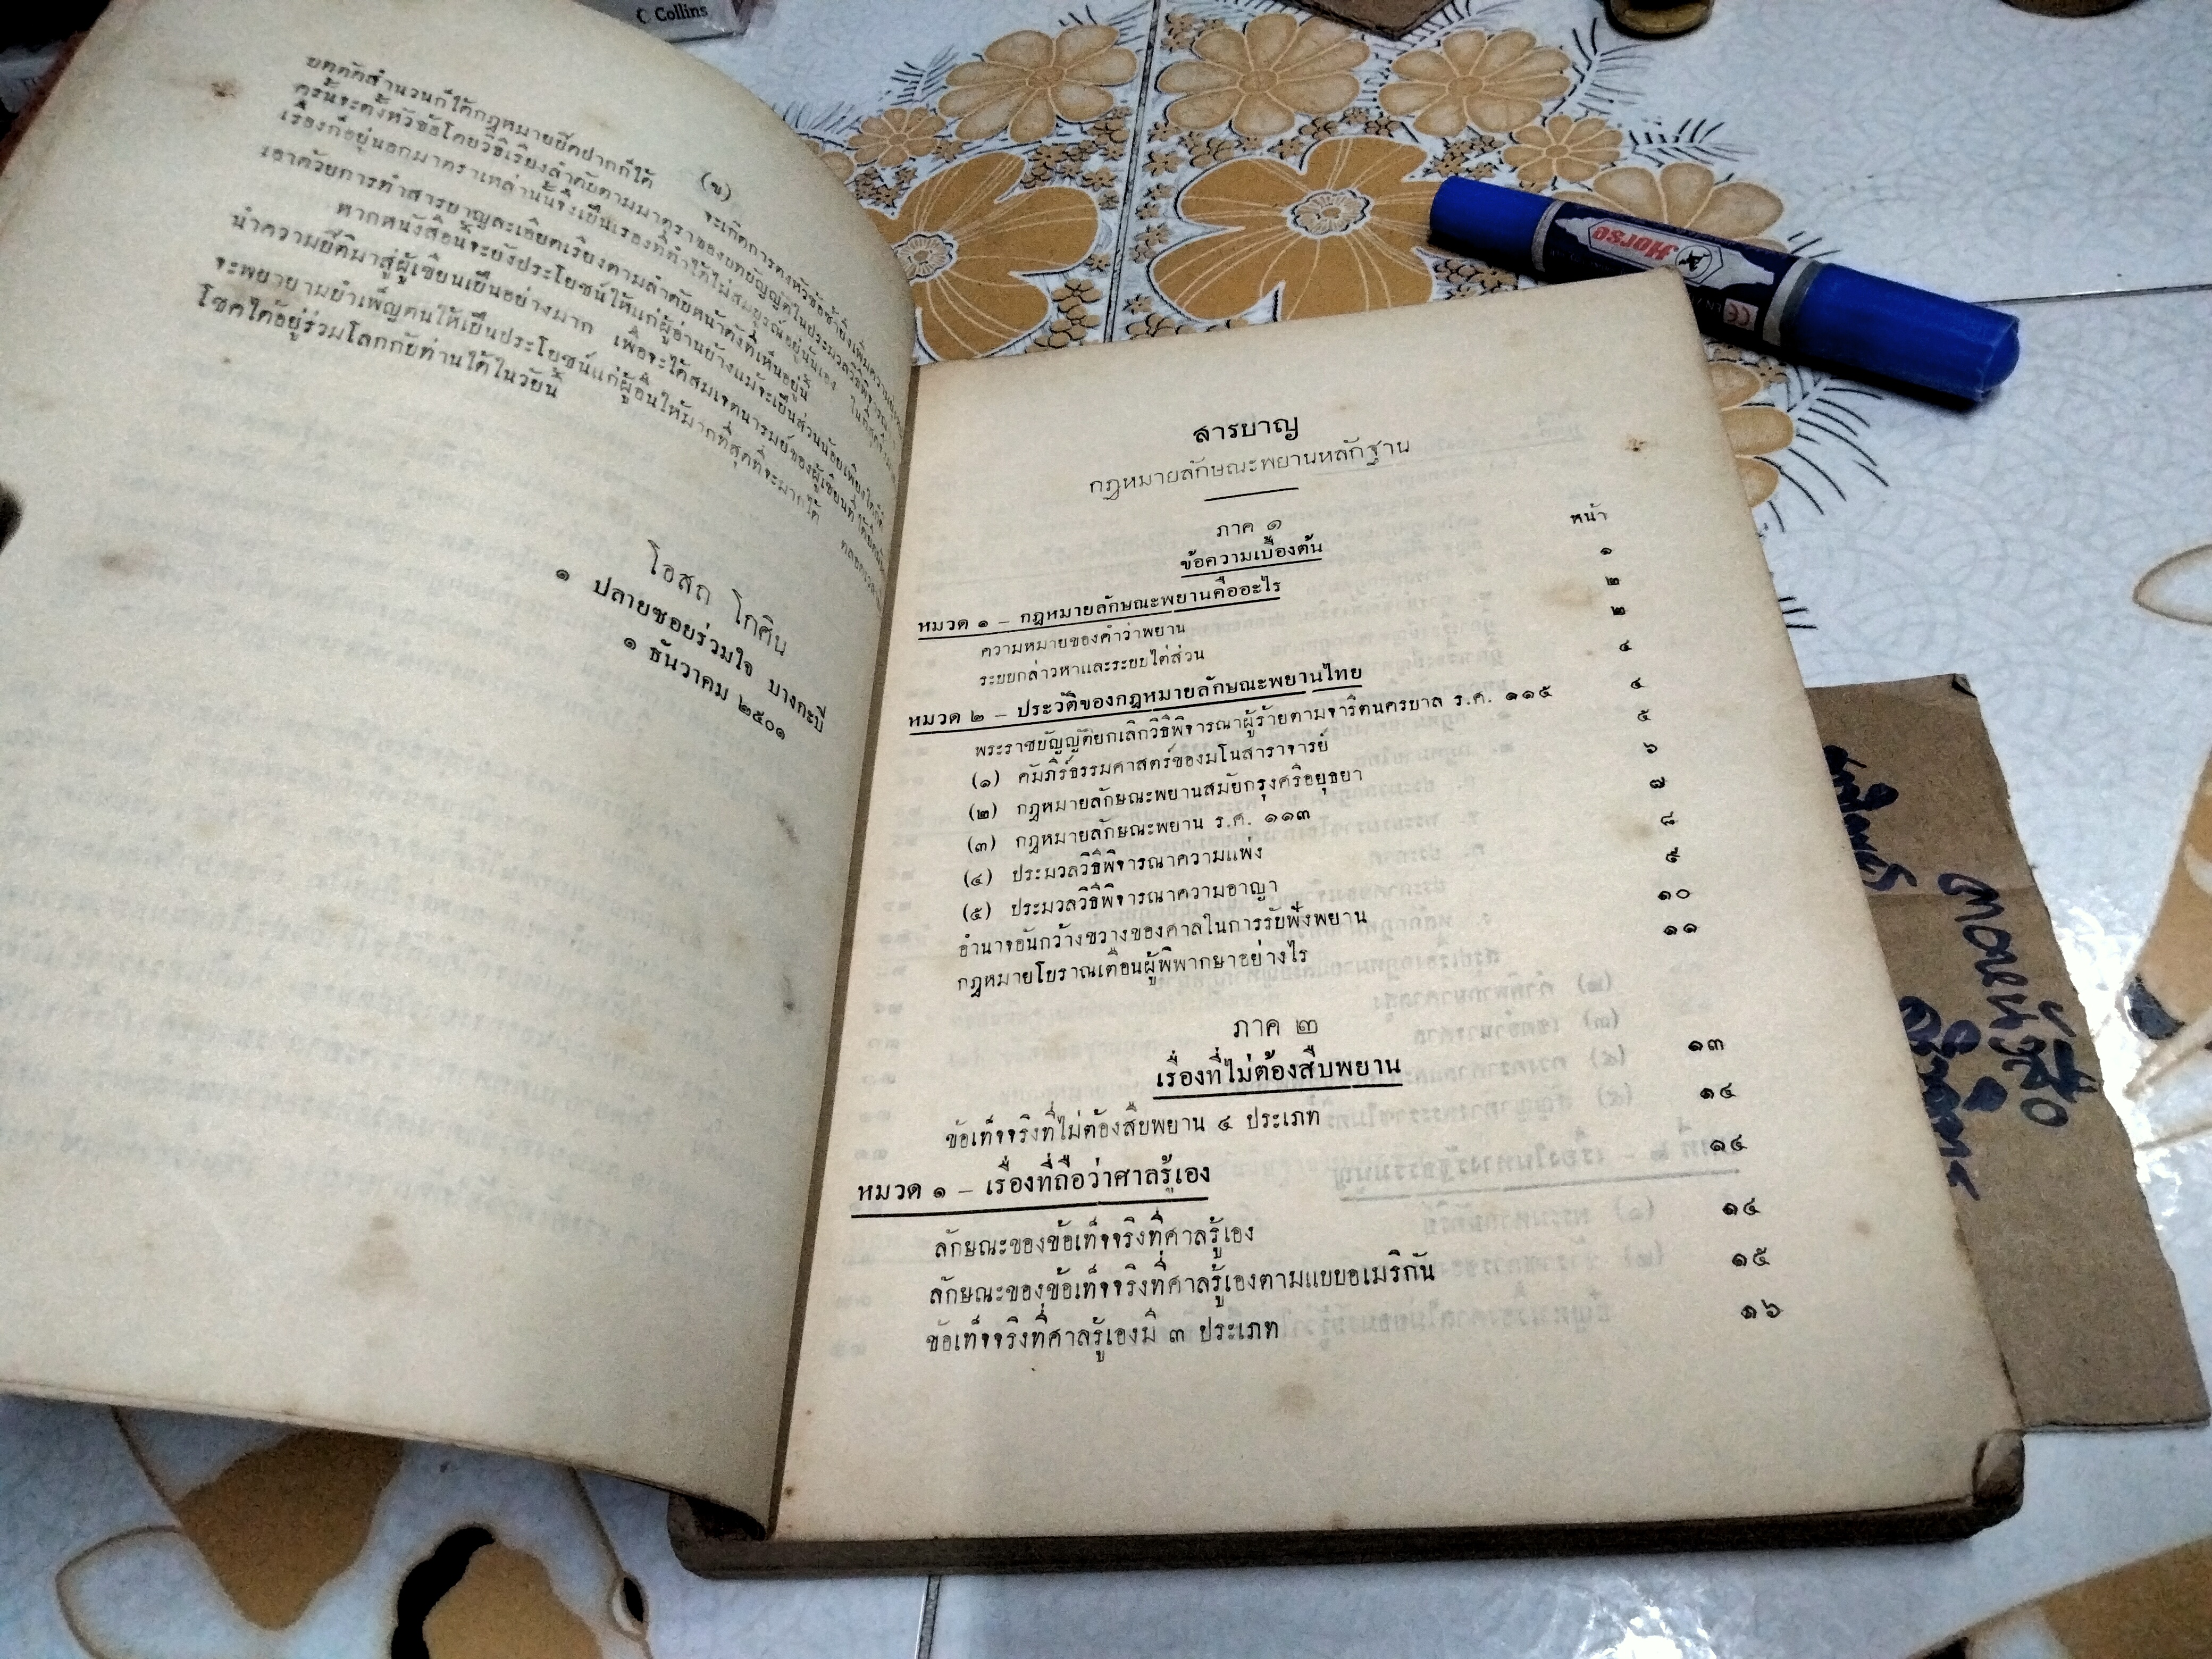 Collins
(ข)
บตตัดสำนวนก็ได้กฎหมายปิดปากก็ได้
ครั้นจะตั้งหัวข้อโดยวิธีเรียงลำดับตามมาตราของบทบัญญัติในประมวลวิธีพิจารณา
เรื่องก็อยู่นอกมาตราเหล่านั้นจึงเป็นเรื่องที่ทำให้ไม่สมบูรณ์อยู่นั่นเอง
เอาด้วยการทำสารบาญละเอียดเรียงตามลำดับหน้าดังที่เห็นอยู่นี้
หากหนังสือนี้จะยังประโยชน์ให้แก่ผู้อ่านบ้างแม้จะเป็นส่วนน้อยเพียงใดก็ดี
นำความยินดีมาสู่ผู้เขียนเป็นอย่างมาก เพื่อจะได้สมเจตนารมย์ของผู้เขียนที่
จะพยายามบำเพ็ญตนให้เป็นประโยชน์แก่ผู้อื่นให้มากที่สุดที่จะมากได้
โชคได้อยู่ร่วมโลกกับท่านได้ในวัยนี้
โอสถ โกศิน
๑ ปลายซอยร่วมใจ บางกะปิ
๑ ธันวาคม ๒๕๐๑
สารบาญ
กฎหมายลักษณะพยานหลักฐาน
ภาค ๑
หน้า
ข้อความเบื้องต้น
หมวด ๑ – กฎหมายลักษณะพยานคืออะไร ๑
ความหมายของคำว่าพยาน ๒
ระบบกล่าวหาและระบบไต่สวน ๒
หมวด ๒ – ประวัติของกฎหมายลักษณะพยานไทย ๔
พระราชบัญญัติยกเลิกวิธีพิจารณาผู้ร้ายตามจารีตนครบาล ร.ศ. ๑๑๕ ๔
(๑) คัมภีร์ธรรมศาสตร์ของมโนสาราจารย์ ๕
(๒) กฎหมายลักษณะพยานสมัยกรุงศรีอยุธยา ๖
(๓) กฎหมายลักษณะพยาน ร.ศ. ๑๑๓ ๗
(๔) ประมวลวิธีพิจารณาความแพ่ง ๘
(๕) ประมวลวิธีพิจารณาความอาญา ๙
อำนาจอันกว้างขวางของศาลในการรับฟังพยาน ๑๐
กฎหมายโบราณเตือนผู้พิพากษาอย่างไร ๑๑
ภาค ๒
เรื่องที่ไม่ต้องสืบพยาน ๑๓
ข้อเท็จจริงที่ไม่ต้องสืบพยาน ๔ ประเภท ๑๔
หมวด ๑ – เรื่องที่ถือว่าศาลรู้เอง ๑๔
ลักษณะของข้อเท็จจริงที่ศาลรู้เอง ๑๔
ลักษณะของข้อเท็จจริงที่ศาลรู้เองตามแบบอเมริกัน ๑๕
ข้อเท็จจริงที่ศาลรู้เองมี ๓ ประเภท ๑๖
Horse
CE